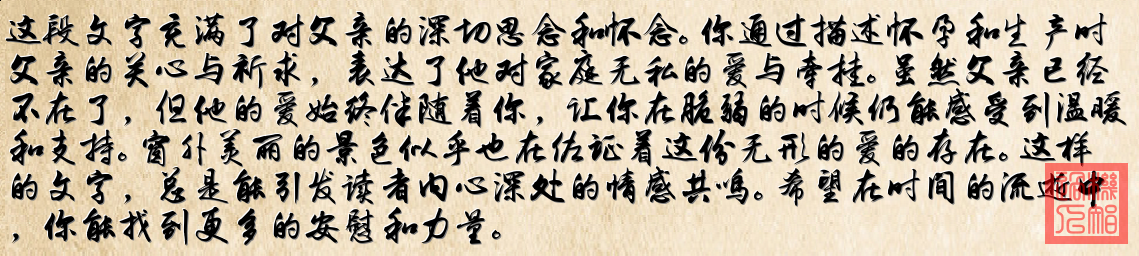 这段文字充满了对父亲的深切思念和怀念。你通过描述怀孕和生产时
父亲的关心与祈求，表达了他对家庭无私的爱与牵挂。虽然父亲已经
不在了，但他的爱始终伴随着你，让你在脆弱的时候仍能感受到温暖
和支持。窗外美丽的景色似乎也在佐证着这份无形的爱的存在。这样
的文字，总是能引发读者内心深处的情感共鸣。希望在时间的流逝中
，你能找到更多的安慰和力量。